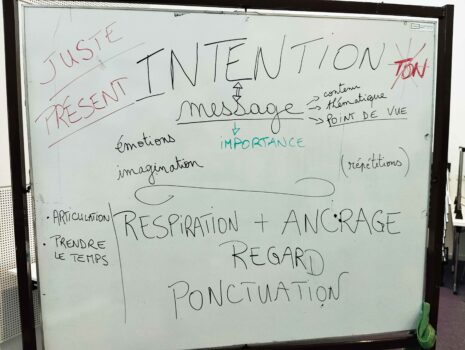 JUSTE
PRÉSENT
INTENTION
TON
message
→ contenu
→ thématique
→ POINT DE VUE
IMPORTANCE
émotions
imagination
(répétitions)
• ARTICULATION
• PRENDRE
LE TEMPS
RESPIRATION + ANCRAGE
REGARD
PONCTUATION